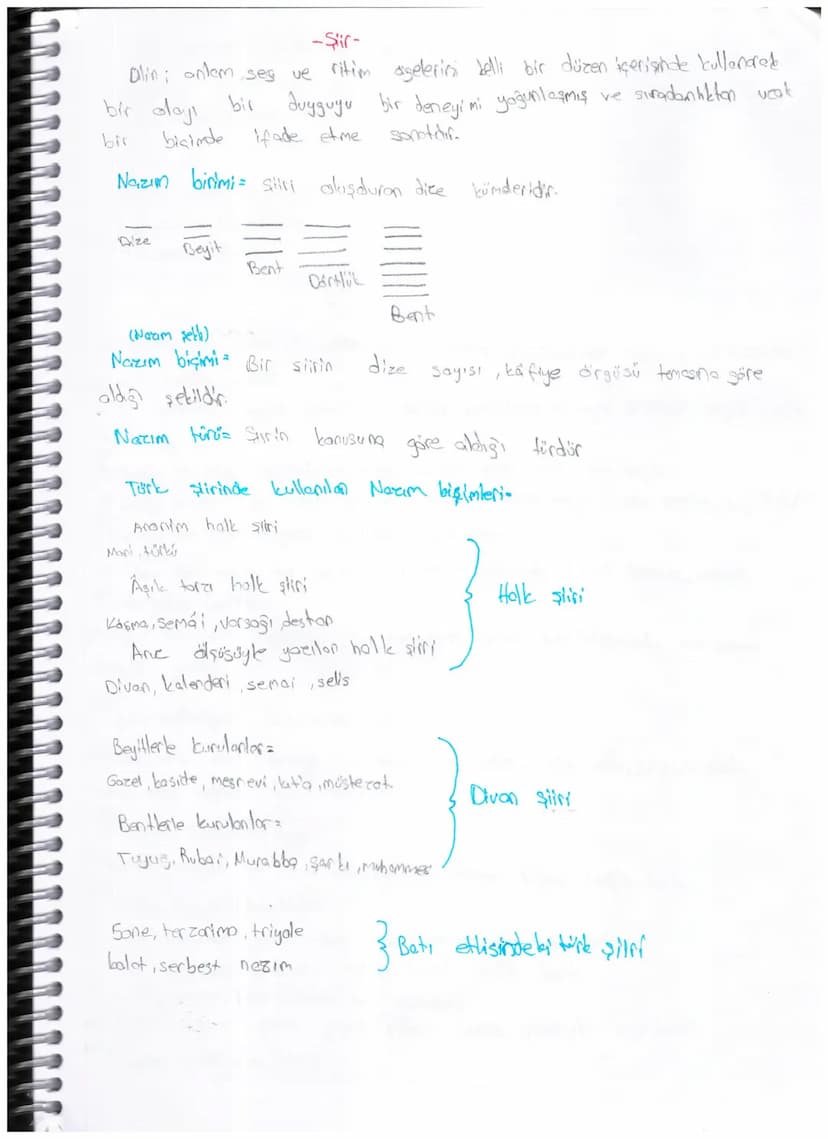 -Şiir-
Dilin; anlam ses ve ritim ögelerini belli bir düzen içerisinde kullanarak
bir olayı bir duyguyu bir deneyimi yoğunlaşmış ve sıradanlıktan uzak
bir biçimde ifade etme sanatıdır.
Nazım birimi= şiiri oluşduran dize kümderidir.
Dize Beyit Bent Dörtlük
Bent
(Nazım şekli)
Nazım biçimi= Bir şiirin dize sayısı, kâfiye örgüsü temasına göre
aldığı şekildir.
Nazım türü= Şiirin konusuna göre aldığı türdür
Türk şiirinde kullanılan Nazım biçimleri-
Anonim halk şiiri
Mani, türkü
Âşık tarzı halk şiiri
Koşma, semâi, varsağı, destan
Halk şiiri
Aruz ölçüsüyle yazılan halk şiiri
Divan, kalenderi, semai, selis
Beyitlerle kurulanlar=
Gazel, kaside, mesnevi, kıt'a, müstezat.
Divan şiiri
Bentlerle kurulanlar=
Tuyuğ, Rubai, Murabba, şarkı, muhammes
Sone, terzarima, triyole
balat, serbest nazım
Batı etkisindeki türk şiiri